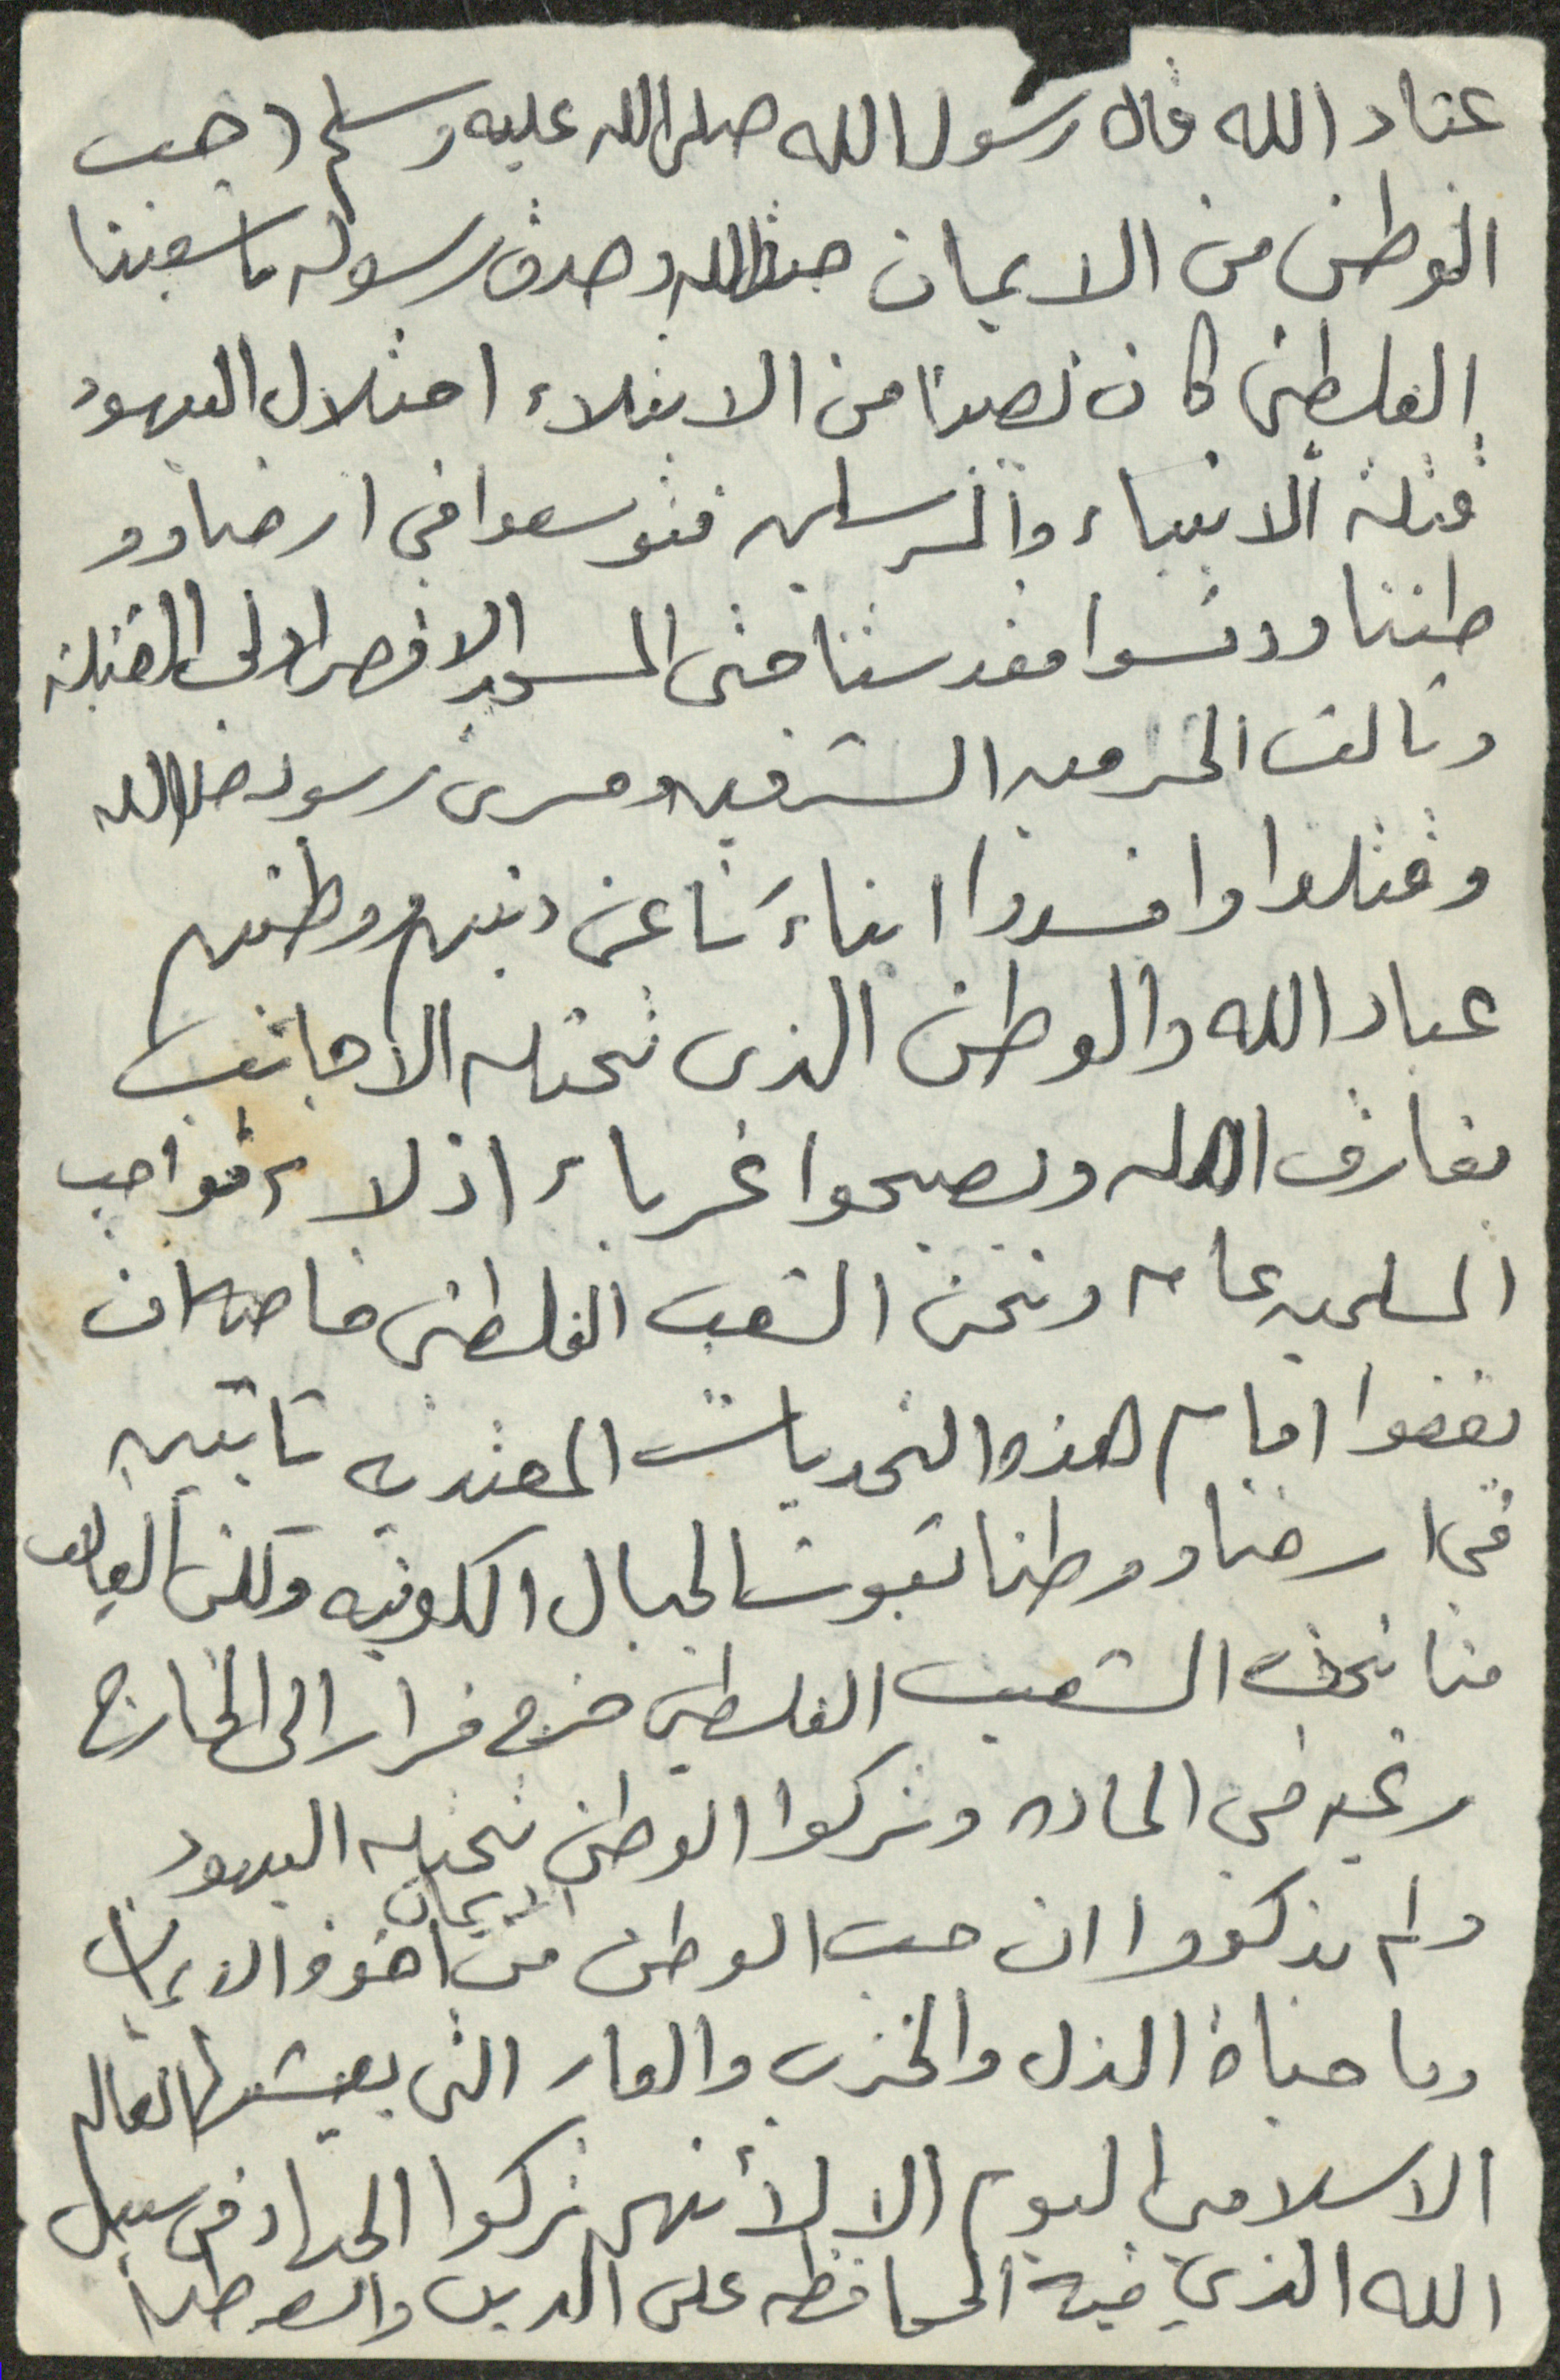 عباد الله قال رسول الله صلى الله عليه وسلم (حب
الوطن من الايمان صدق الله وصدق رسوله يا شعبنا
الفلسطيني كان نصيبنا من الابتلاء احتلال اليهود
قتلة الانبياء والمرسلين فتوسعوا في ارضنا وو
طننا ودنسوا مقدستنا حتى المسجد الاقصى اولى القبلة
وثالث الحرمين الشرفين ومسرى رسول صلى الله
وقتلوا وافسدوا ابناءَنا عن دينهم ووطنهم
عباد الله والوطن الذي تحتله الاجانب
يفارق اهله ويصبحوا غرباء اذلاء فواجب
المسلمين عامه ونحن الشعب الفلسطيني خاصه ان
يقفوا امام هذه التحديات المعتديه ثابتين
في ارضنا ووطنا ثبوت الجبال الكونيه ولكن الغالب
منا نحن الشعب الفلسطيني خرج فرارا الى الخارج
رغبه في الماده وتركوا الوطن تحتله اليهود
ولم يذكروا ان حب الوطن من الايمان اخوة الايمان
وما حياة الذل والخزي والعار التي يعيشها العالم
الاسلامي اليوم الا لأنهم تركوا الجهاد في سبيل
الله الذي فيه المحافظه على الدين والوطن